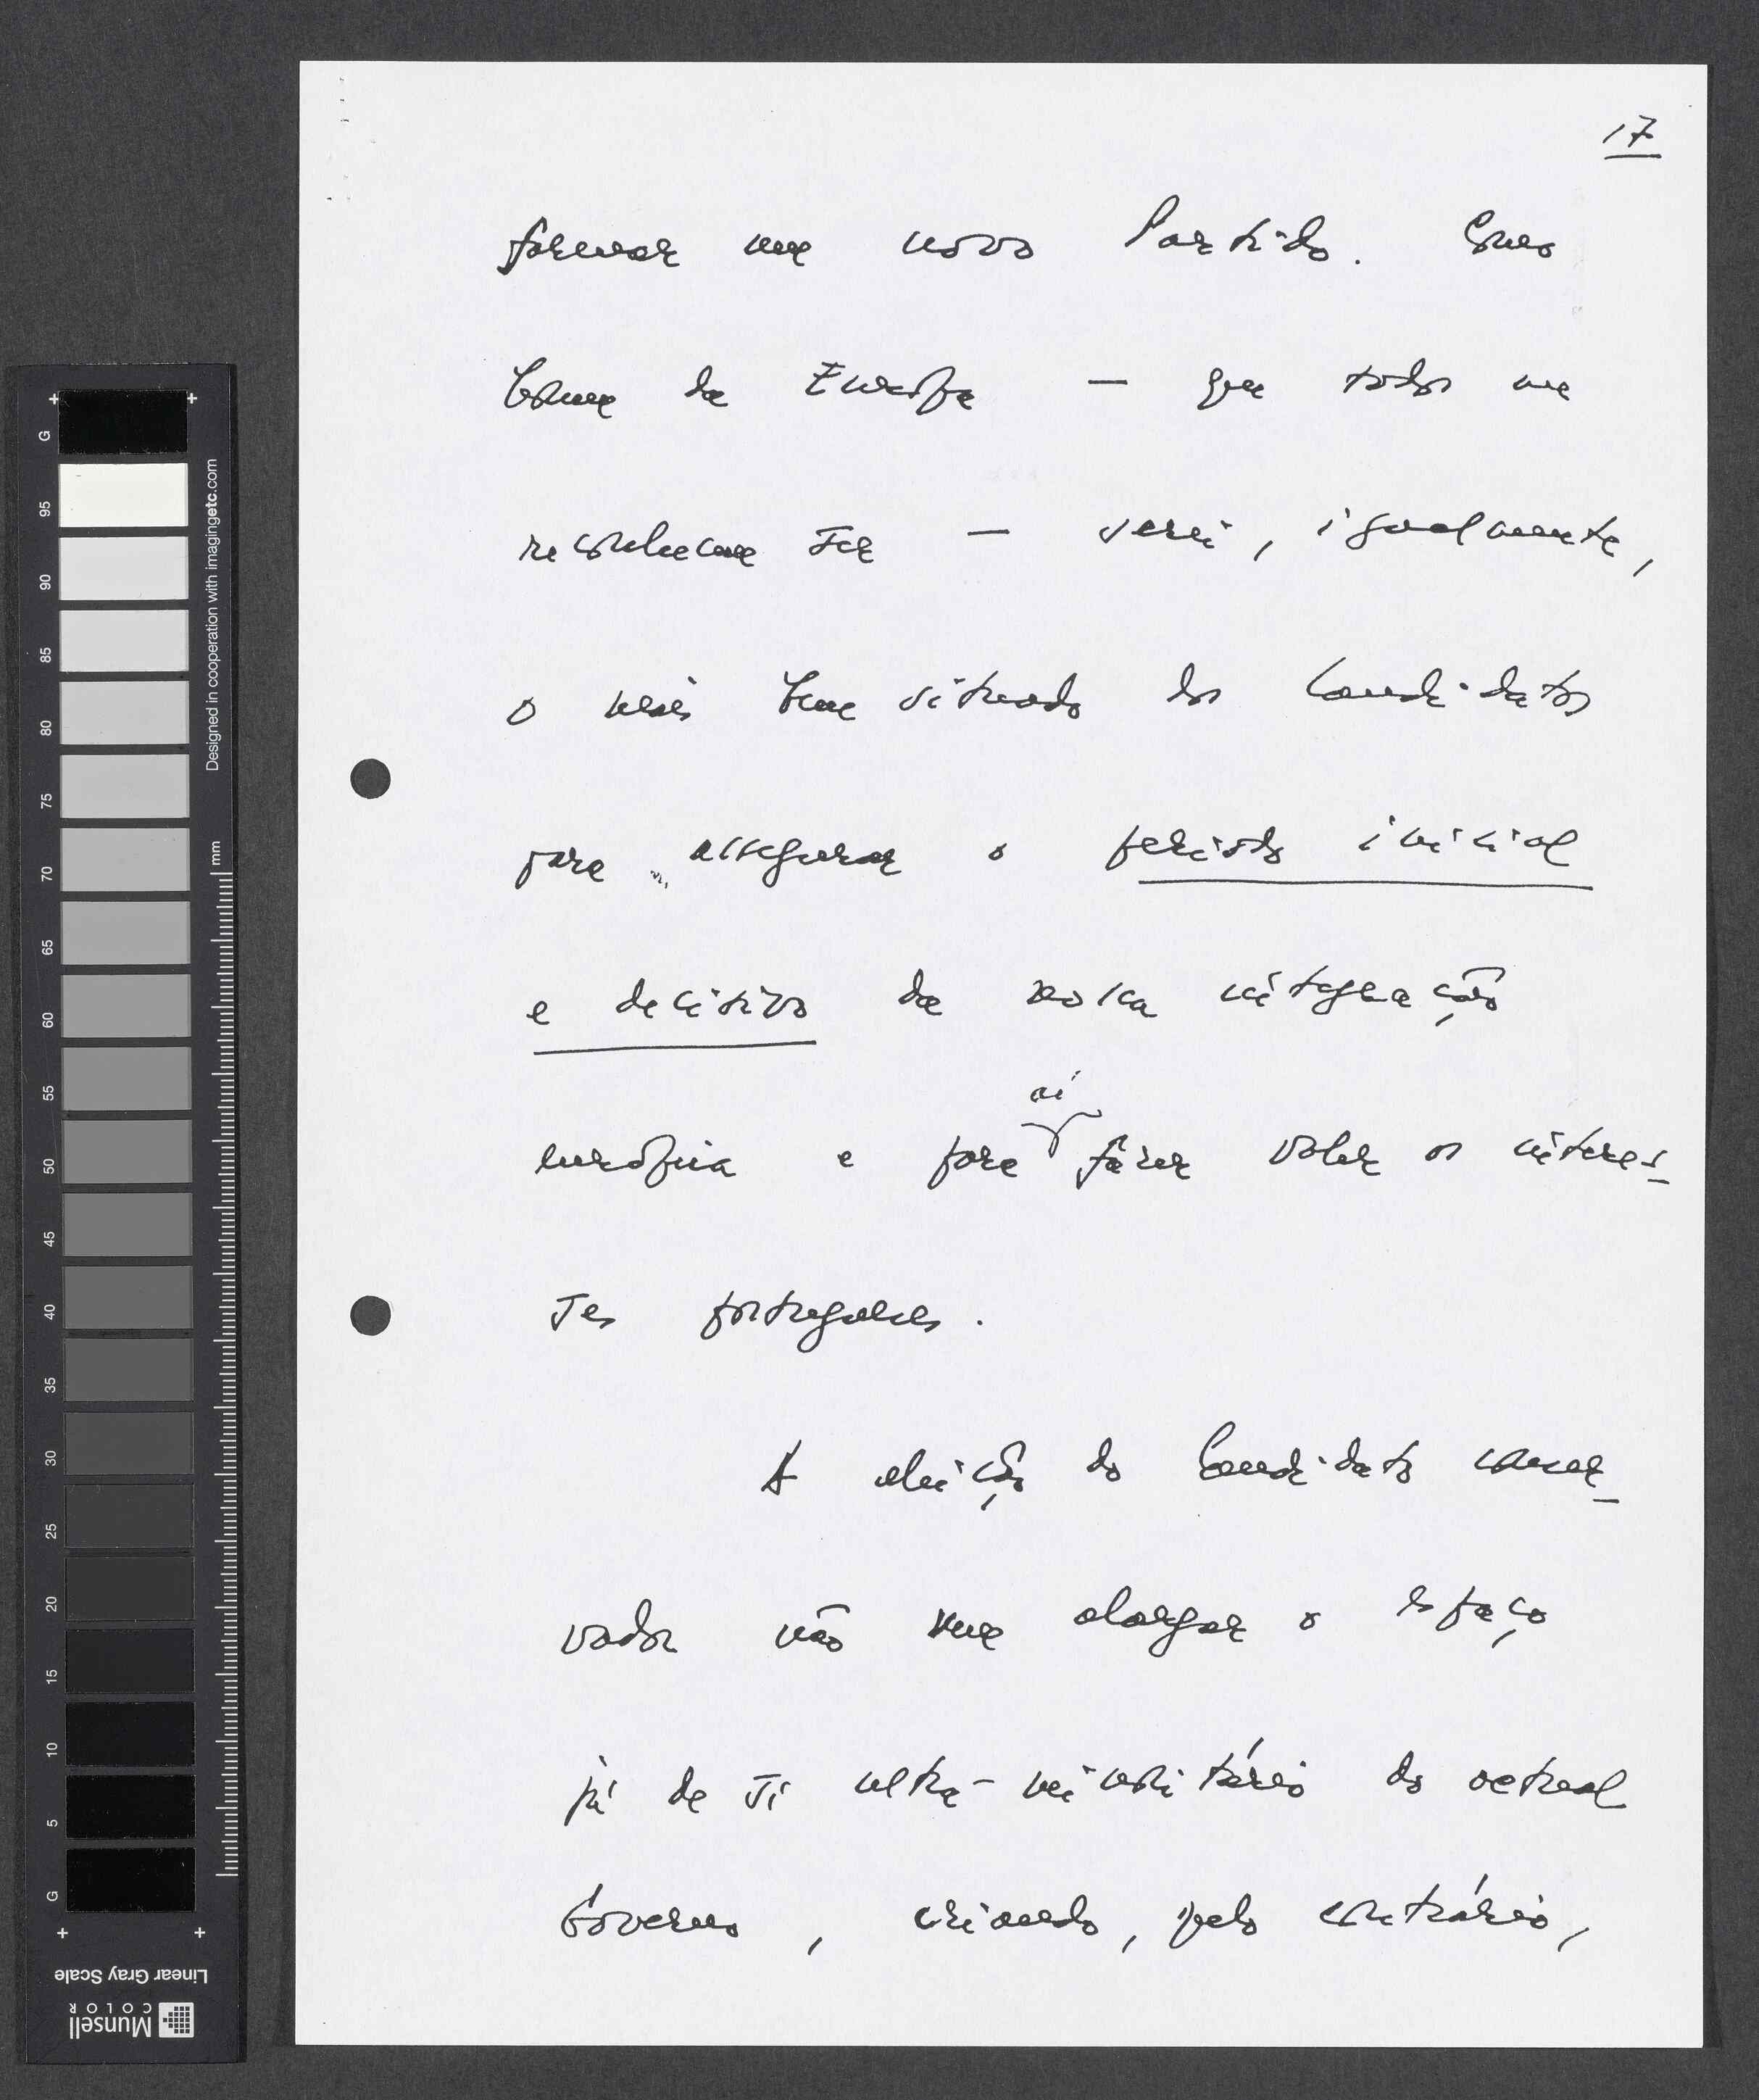 17
formar um novo Partido. Como
homem da Europa — que todos me
reconhecem ser — serei, igualmente,
o mais bem situado dos Candidatos
para assegurar o período inicial
e decisivo da nossa integração
aí
europeia e para fazer valer os interes-
ses portugueses.
A eleição do Candidato conser-
vador não vem alargar o espaço
já de si ultra-minoritário do actual
Governo, criando, pelo contrário,
G
95
90
85
80
75
70
65
60
55
50
45
40
35
30
25
20
15
10
5
G
mm
Designed in cooperation with imagingetc.com
Linear Gray Scale
Munsell
COLOR